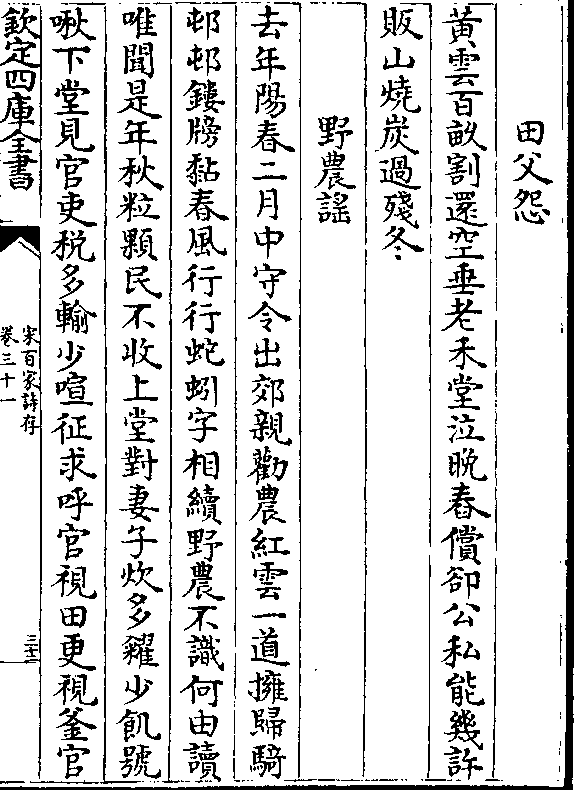 田父怨
黃雲百畝割還空垂老禾堂泣晚舂償卻公私能幾許
販山燒炭過殘冬
野農謠
去年陽春二月中守令出郊親勸農紅雲一道擁歸騎
邨邨鏤牓黏春風行行蛇蚓字相續野農不識何由讀
唯聞是年秋粒顆民不收上堂對妻子炊多糴少飢號
啾下堂見官吏稅多輸少喧征求呼官視田更視釜官
欽定四庫全書
宋百家詩存
卷三十一
三十二